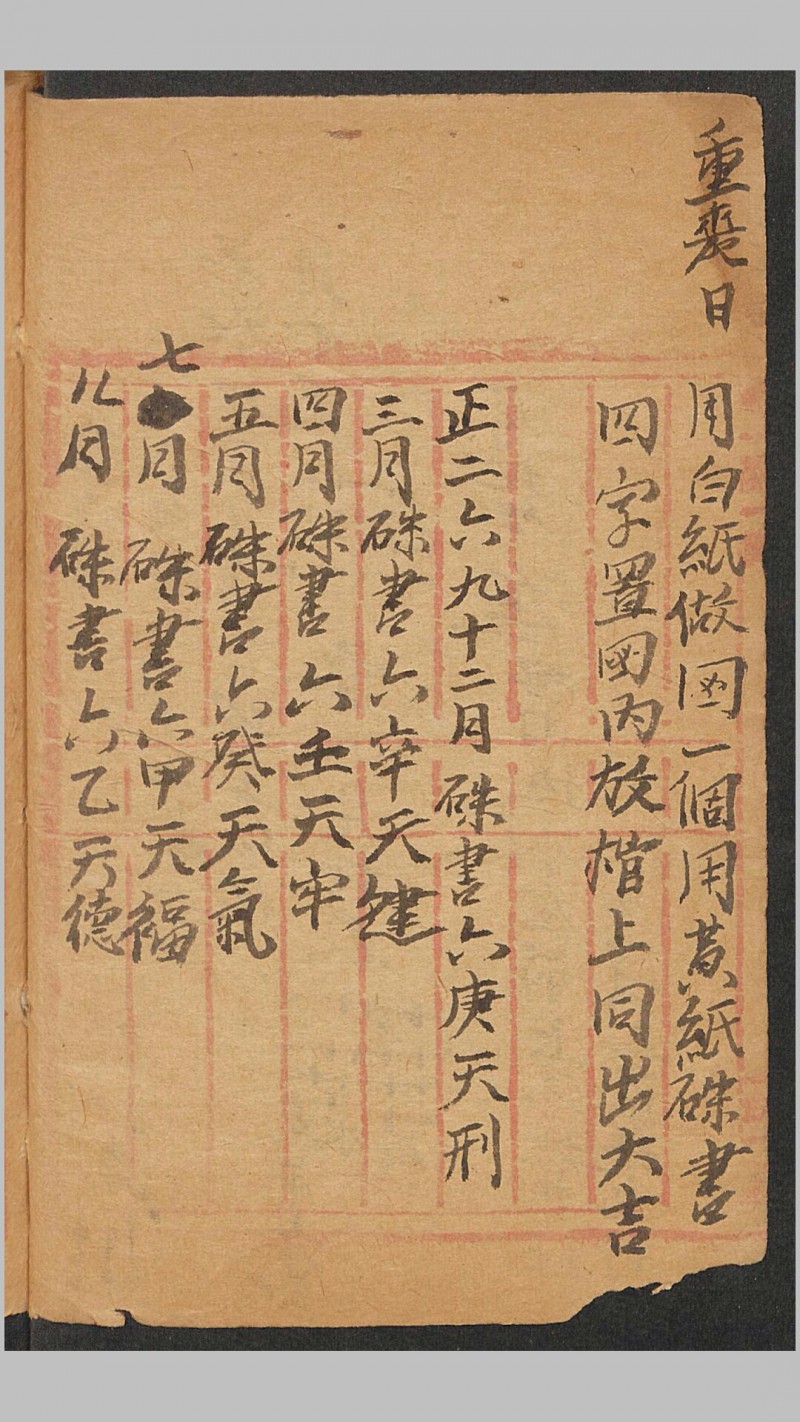 重喪日
用白紙做函一個用黃紙硃書
四字置函內放棺上同出大吉
正二六九十二月 硃書六庚天刑
三月硃書六辛天建
四月硃書六壬天牢
五月硃書六癸天氣
七月 硃書六甲天福
八月 硃書六乙天德